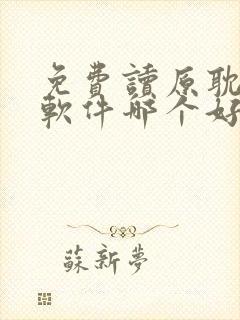 免費讀原耽
軟件哪个好
蘇新夢